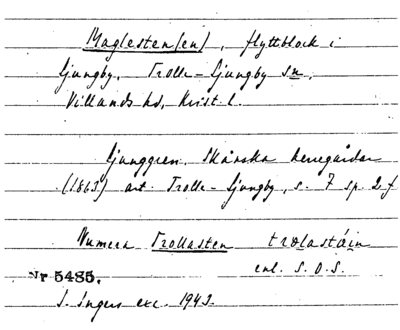 Maglesten(en), flyttblock i
Ljungby, Trolle-Ljungby sn,
Villands hd, Krist. l.
Ljunggren, Skånska herregårdar
(1863) art. Trolle-Ljungby, s. 7 sp. 2 f
Numera Trollasten trolastáin
enl. S.O.S.
Nr 5485.
I. Ingers exc. 1943.